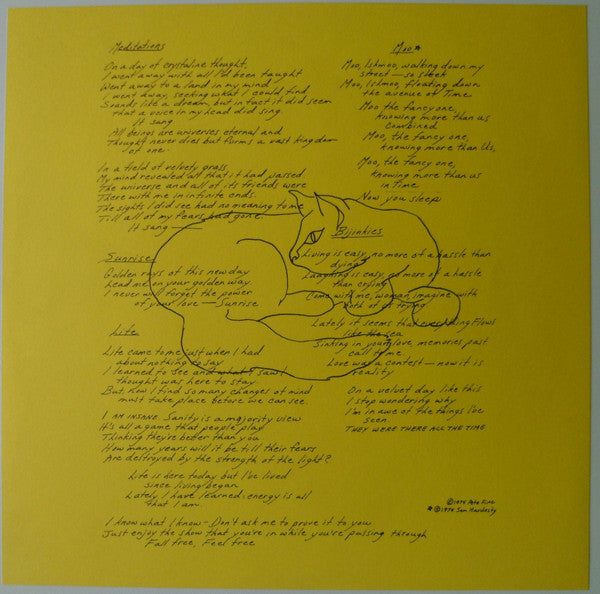 Meditations
On a day of crystaline thought,
I went away with all I'd been taught
Went away to a land in my mind
I went away, seeking what I could find
Sounds like a dream, but in fact it did seem
that a voice in my head did sing.
It sang
All beings are universes eternal and
Thought never dies but forms a vast kingdom
of one.
In a field of velvety grass
My mind revealed all that it had passed
The universe and all of its friends were
There with me in infinite ends.
The sights I did see had no meaning to me
Till all of my fears had gone.
It sang —
Sunrise
Golden rays of this new day
Lead me on your golden way
I never will forget the power
of your love — Sunrise
Life
Life came to me just when I had
about nothing to say
I learned to see and what I saw I
thought was here to stay
But, Now I find so many changes of mind
must take place before we can see.
I AM INSANE. Sanity is a majority view
It's all a game that people play
Thinking they're better than you
How many years will it be till their fears
Are destroyed by the strength of the light?
Life is here today but I've lived
since living began
Lately I have learned: energy is all
that I am.
I know what I know - Don't ask me to prove it to you
Just enjoy the show that you're in while you're passing through
Fall free, Feel free
Moo*
Moo, Ishmoo, walking down my
street — so sleek
Moo, Ishmoo, floating down
the avenue of Time
Moo the fancy one,
knowing more than us
combined
Moo, the fancy one,
knowing more than Us,
Moo, the fancy one,
knowing more than us
in Time
Now you sleep
Bijinkies
Living is easy, no more of a hassle than
dying
Laughing is easy, no more of a hassle
than crying
Come with me, woman imagine with
both of us trying.
Lately it seems that everything Flows
like the sea
Sinking in your love, memories past
call to me.
Love was a contest — now it is
reality
On a velvet day like this
I stop wondering why
I'm in awe of the things I've
seen.
THEY WERE THERE ALL THE TIME
©1974 Pete Fine
* ©1974 Sam